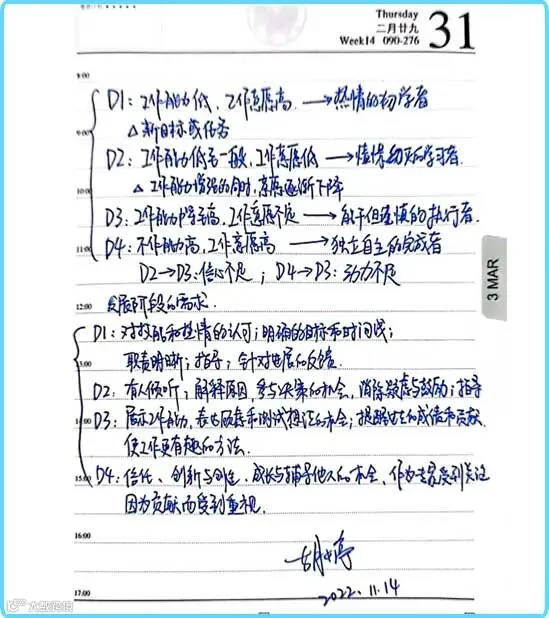 Thursday
二月廿九
Week14 090-276
31
8:00
D1：工作能力低，工作意愿高 →热情的初学者
9:00
△ 新目标或任务
D2：工作能力低至一般，工作意愿低 →憧憬幻灭的学习者
10:00
△ 工作能力增强的同时，意愿逐渐下降
D3：工作能力中至高，工作意愿不定 →能干但谨慎的执行者
11:00
D4：工作能力高，工作意愿高 →独立自主的完成者
D2→D3：信心不足；D4→D3：动力不足
3 MAR
12:00
发展阶段的需求．
D1：对技能和热情的认可；明确的目标和时间线；
13:00
职责明晰；指导；针对进展的反馈．
D2：有人倾听；解释原因，参与决策的机会，消除疑虑与鼓励；指导
D3：展示工作能力，表达顾虑和测试想法的机会；提醒过去的成绩和贡献
使工作更有趣的方法．
D4：信任、创新与创造，成长与辅导他人的机会，作为专家受到关注
15:00
因为贡献而受到重视．
16:00
2022.11.14
17:00